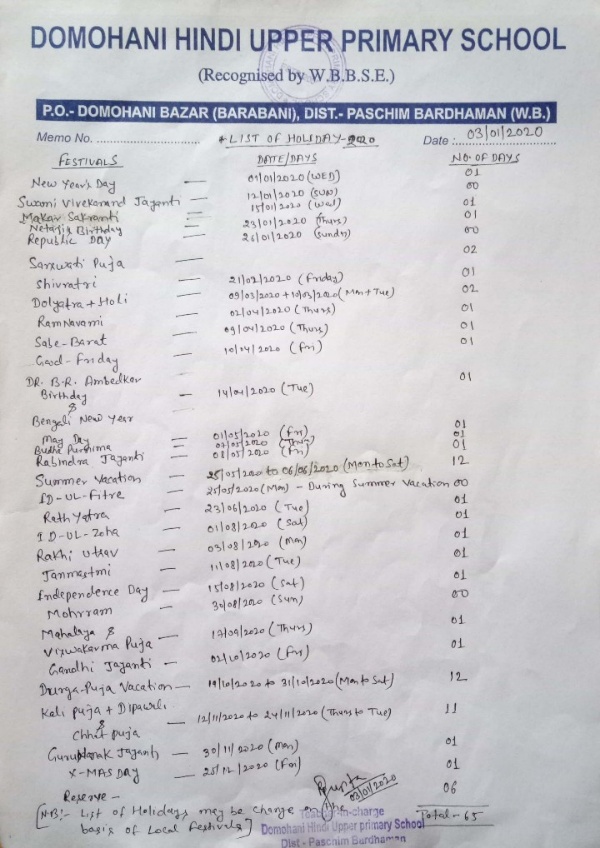 DOMOHANI HINDI UPPER PRIMARY SCHOOL
(Recognised by W.B.B.S.E.)
P.O.- DOMOHANI BAZAR (BARABANI), DIST.- PASCHIM BARDHAMAN (W.B.)
Memo No. LIST OF HOLIDAY-2020 Date : 03/01/2020
FESTIVALS DATE/DAYS NO. OF DAYS
New Year's Day — 01/01/2020 (WED) 01
Swami Vivekanand Jayanti — 12/01/2020 (SUN) 00
Makar Sakranti — 15/01/2020 (Wed) 01
Netaji's Birthday — 23/01/2020 (Thurs) 01
Republic DAY — 26/01/2020 (Sunday) 00
Sarswati Puja — 02
Shivratri — 21/02/2020 (Friday) 01
Dolyatra + Holi — 09/03/2020 + 10/03/2020 (Mon + Tue) 02
Ram Navami — 02/04/2020 (Thurs) 01
Sabe-Barat — 09/04/2020 (Thurs) 01
Good-Friday — 10/04/2020 (Fri) 01
DR. B.R. Ambedkar
Birthday — 14/04/2020 (Tue) 01
&
Bengali New Year
May Day — 01/05/2020 (Fri) 01
Budha Purnima — 07/05/2020 (Thurs) 01
Rabindra Jayanti — 08/05/2020 (Fri) 01
Summer Vacation — 25/05/2020 to 06/06/2020 (Mon to Sat) 12
ID-UL-Fitre — 25/05/2020 (Mon) - During Summer Vacation 00
Rath Yatra — 23/06/2020 (Tue) 01
ID-UL-Zoha — 01/08/2020 (Sat) 01
Rakhi Utsav — 03/08/2020 (Mon) 01
Janmastmi — 11/08/2020 (Tue) 01
Independence Day — 15/08/2020 (Sat) 01
Mohrram — 30/08/2020 (Sun) 00
Mahalaya &
Viswakarma Puja — 17/09/2020 (Thurs) 01
Gandhi Jayanti — 02/10/2020 (Fri) 01
Durga-Puja Vacation — 19/10/2020 to 31/10/2020 (Mon to Sat) 12
Kali Puja + Dipawali
& — 12/11/2020 to 24/11/2020 (Thurs to Tue) 11
Chhat puja
Guru Nanak Jayanti — 30/11/2020 (Mon) 01
X-MAS DAY — 25/12/2020 (Fri) 01
Reserve - 06
03/01/2020
[N.B:- List of Holidays may be change on the
basis of Local Festivals]
Total - 65
Teacher-in-charge
Domohani Hindi Upper primary School
Dist - Paschim Bardhaman